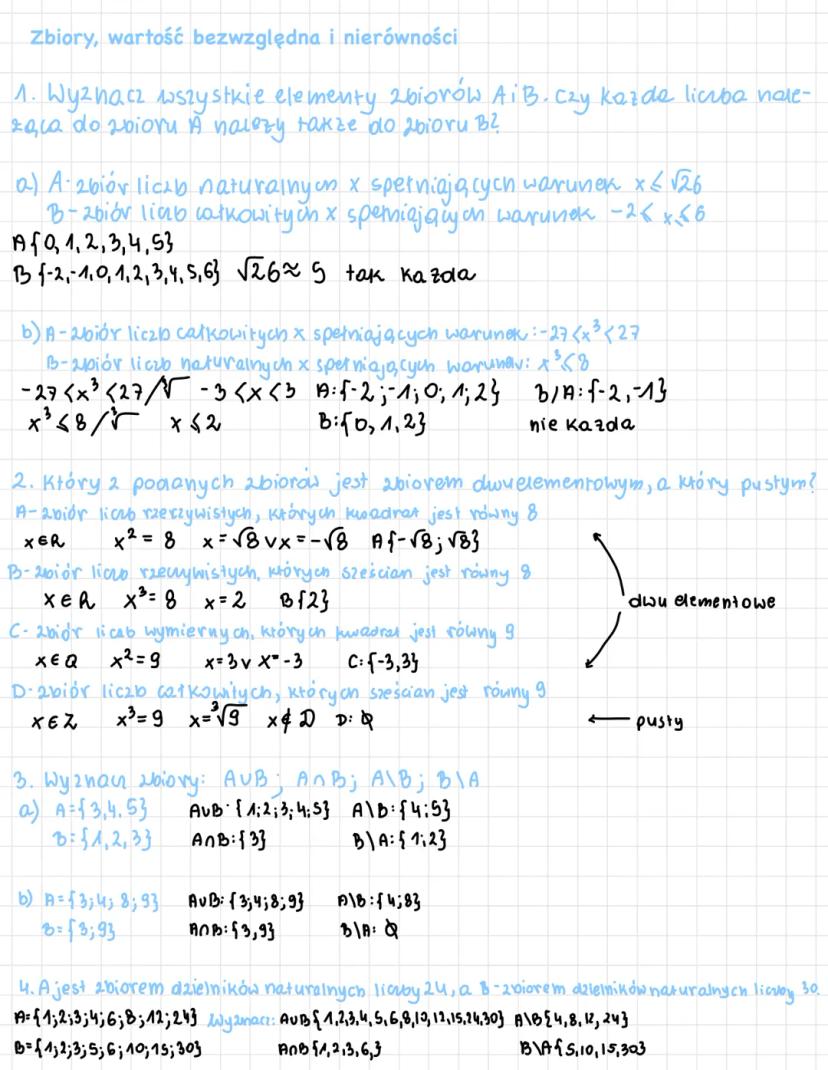 Zbiory, wartość bezwzględna i nierówności
1. Wyznacz wszystkie elementy zbiorów A i B. Czy każda liczba nale-
żąca do zbioru A należy także do zbioru B?
a) A-zbiór liczb naturalnych x spełniających warunek x ≤ √26
B-zbiór liczb całkowitych x spełniających warunek -2 ≤ x ≤ 6
A{0,1,2,3,4,5}
B{-2,-1,0,1,2,3,4,5,6} √26≈5 tak każda
b) A-zbiór liczb całkowitych x spełniających warunek: -27<x³<27
B-zbiór liczb naturalnych x spełniających warunek: x³≤8
-27<x³<27/∛ -3<x<3 A:{-2;-1;0;1;2} B/A:{-2,-1}
x³≤8/∛ x≤2 B:{0,1,2} nie każda
2. Który z podanych zbiorów jest zbiorem dwuelementowym, a który pustym?
A-zbiór liczb rzeczywistych, których kwadrat jest równy 8
x∈R x²=8 x=√8 ∨ x=-√8 A{-√8;√8}
B-zbiór liczb rzeczywistych, których sześcian jest równy 8
x∈R x³=8 x=2 B{2}
dwu elementowe
C-zbiór liczb wymiernych, których kwadrat jest równy 9
x∈Q x²=9 x=3 ∨ x=-3 C:{-3,3}
D-zbiór liczb całkowitych, których sześcian jest równy 9
x∈Z x³=9 x=∛9 x∉D D:∅ ← pusty
3. Wyznacz zbiory: A∪B; A∩B; A\B; B\A
a) A={3,4,5} A∪B:{1;2;3;4;5} A\B:{4;5}
B:{1,2,3} A∩B:{3} B\A:{1;2}
b) A={3;4;8;9} A∪B:{3;4;8;9} A\B:{4;8}
B={3;9} A∩B:{3,9} B\A:∅
4. A jest zbiorem dzielników naturalnych liczby 24, a B-zbiorem dzielników naturalnych liczby 30.
A={1;2;3;4;6;8;12;24} Wyznacz: A∪B{1,2,3,4,5,6,8,10,12,15,24,30} A\B{4,8,12,24}
B={1;2;3;5;6;10;15;30} A∩B{1,2,3,6,} B\A{5,10,15,30}